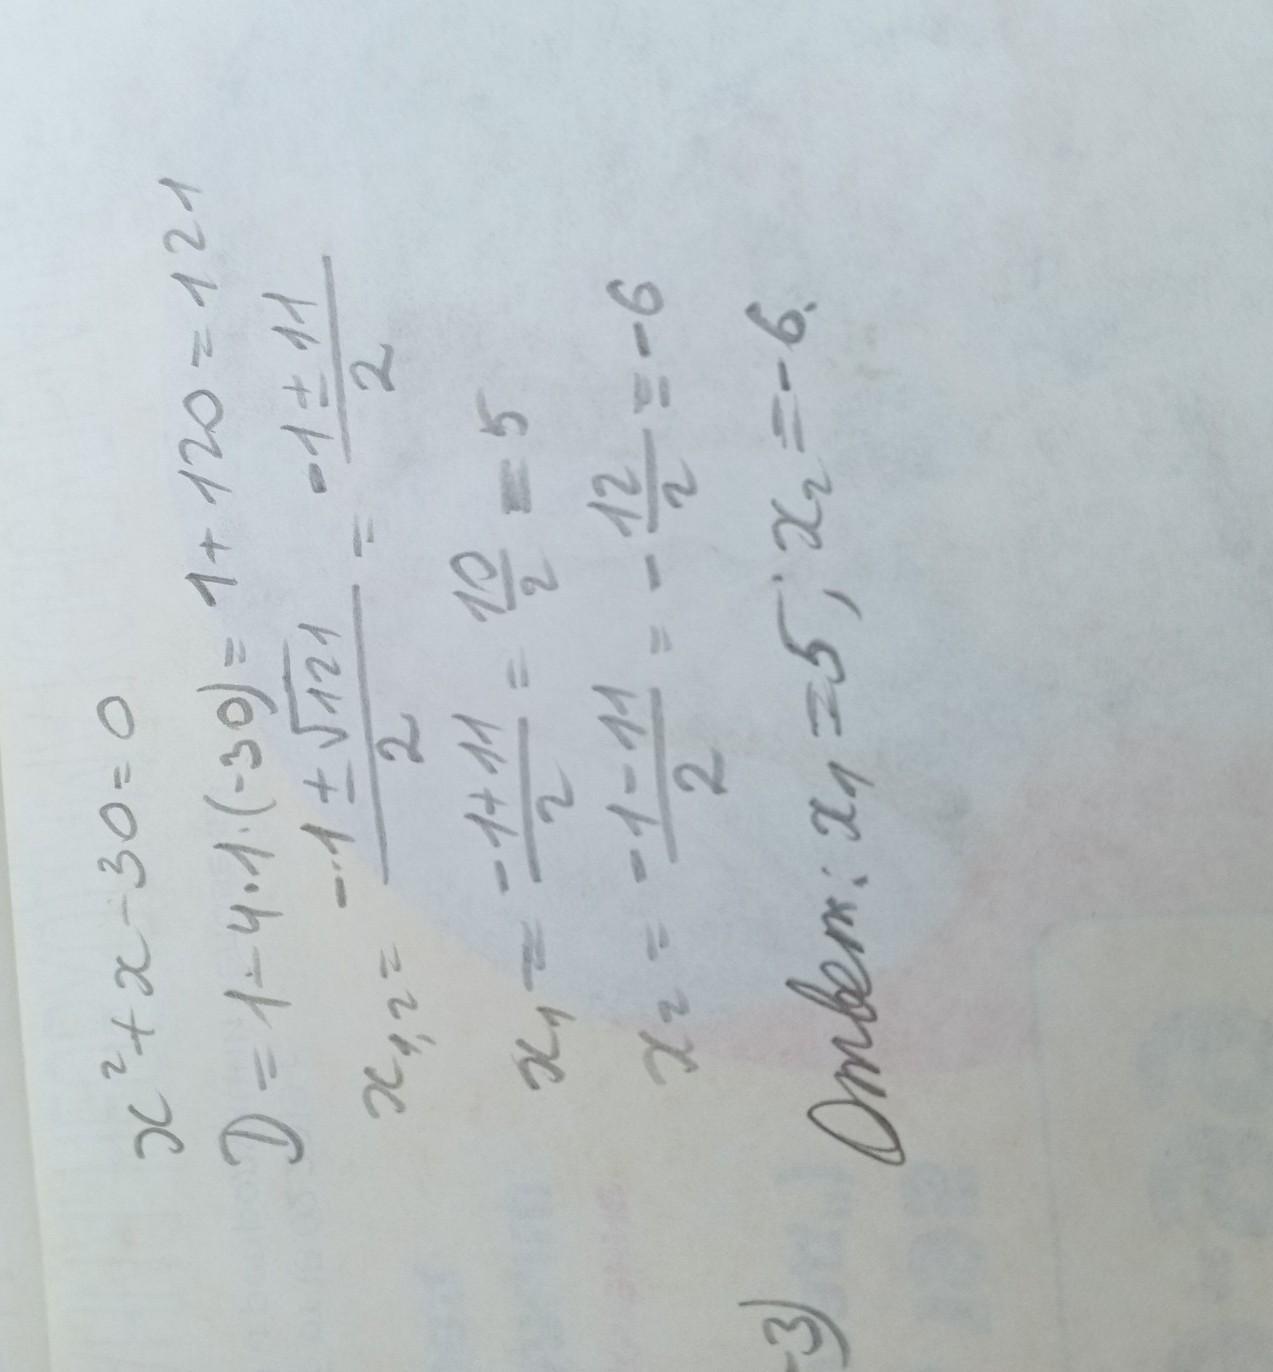 x² + x - 30 = 0
D = 1 - 4·1·(-30) = 1 + 120 = 121
x₁,₂ = (-1 ± √121)/2 = (-1 ± 11)/2
x₁ = (-1 + 11)/2 = 10/2 = 5
x₂ = (-1 - 11)/2 = -12/2 = -6
Ответ: x₁ = 5; x₂ = -6.
-3)